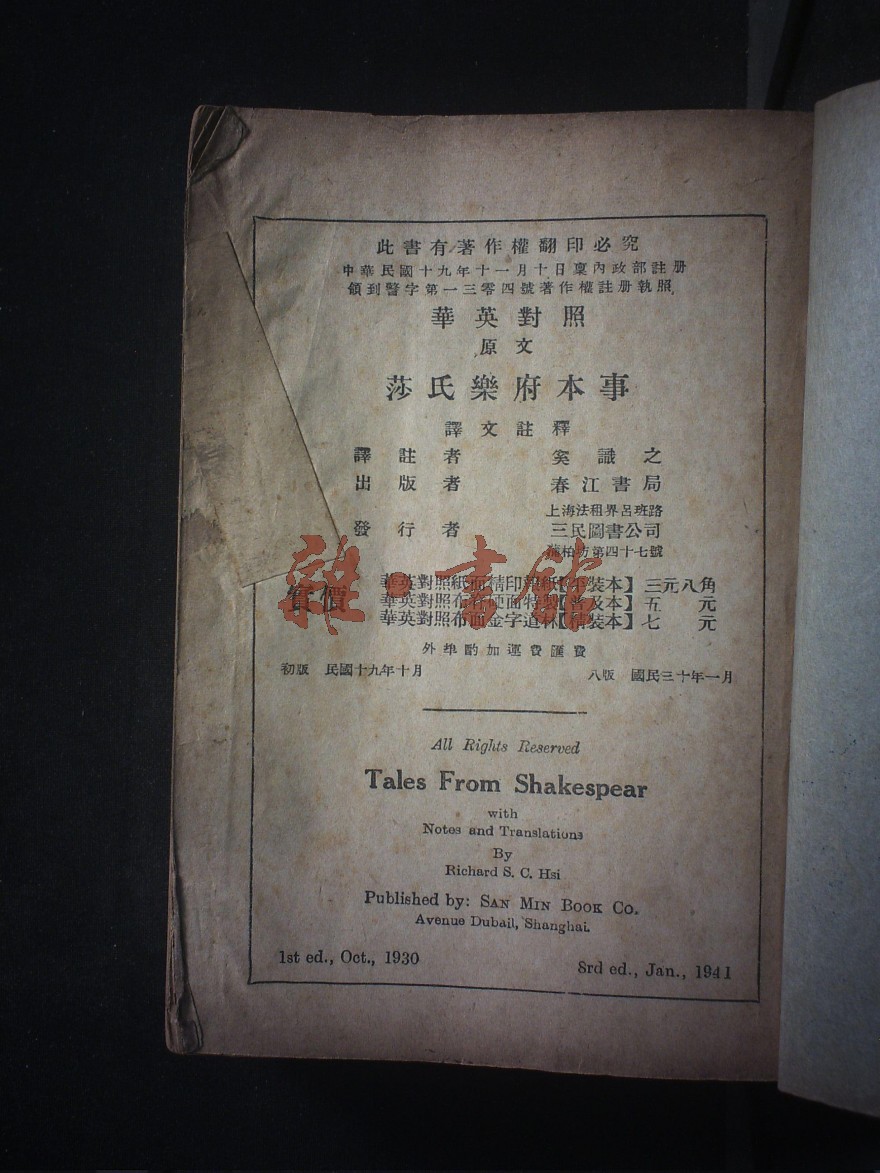 此書有著作權翻印必究
中華民國十九年十一月十日稟內政部註册
領到警字第一三零四號著作權註册執照
華英對照
原文
莎氏樂府本事
譯文註釋
譯註者 奚識之
出版者 春江書局
上海法租界呂班路
發行者 三民圖書公司
蒲柏坊第四十七號
華英對照紙面精印報紙【平裝本】三元八角
實價 華英對照布脊硬面特製【普及本】五元
華英對照布面金字道林【精裝本】七元
外埠酌加運費匯費
初版 民國十九年十月 八版 國民三十年一月
雜·書館
All Rights Reserved
Tales From Shakespear
with
Notes and Translations
By
Richard S. C. Hsi
Published by: SAN MIN BOOK CO.
Avenue Dubail, Shanghai.
1st ed., Oct., 1930 8rd ed., Jan., 1941